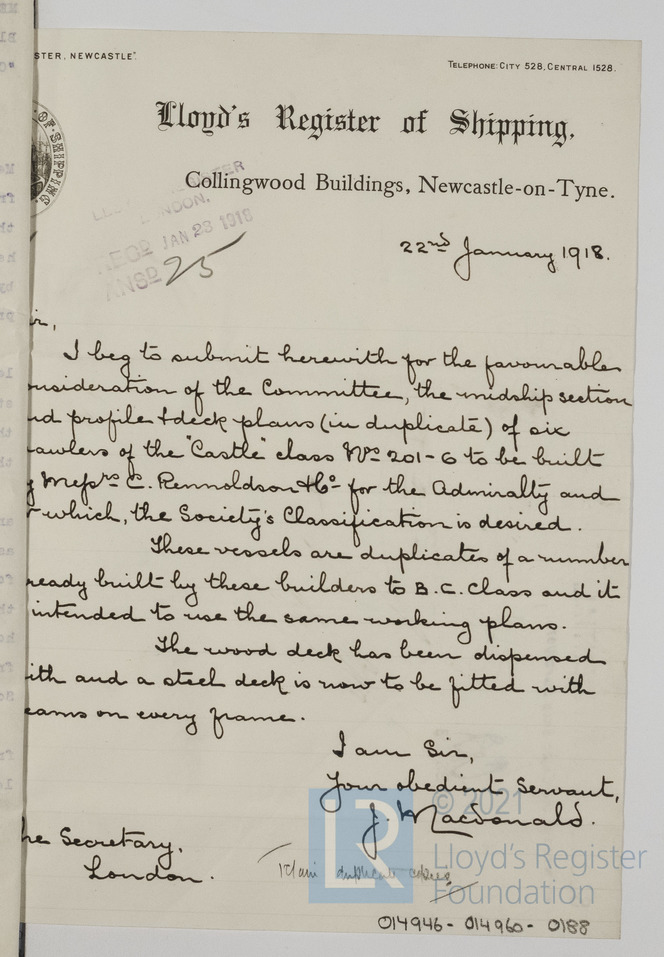 STER, NEWCASTLE".
TELEPHONE: CITY 528, CENTRAL 1528.
OF SHIPPING
Lloyd's Register of Shipping,
Collingwood Buildings, Newcastle-on-Tyne.
LONDON.
RECD JAN 23 1918
ANSD 25
22nd January 1918.
ir,
I beg to submit herewith for the favourable
onsideration of the Committee, the midship section
nd profile & deck plans (in duplicate) of six
rawlers of the "Castle" class Nos 201-6 to be built
y Messrs C. Rennoldson & Co for the Admiralty and
r which, the Society's Classification is desired.
These vessels are duplicates of a number
ready built by these builders to B.C. Class and it
intended to use the same working plans.
The wood deck has been dispensed
ith and a steel deck is now to be fitted with
eams on every frame.
I am Sir,
Your obedient Servant,
J. Macdonald.
he Secretary,
London.
duplicate copies
LR
© 2021
Lloyd's Register
Foundation
014946-014960-0188